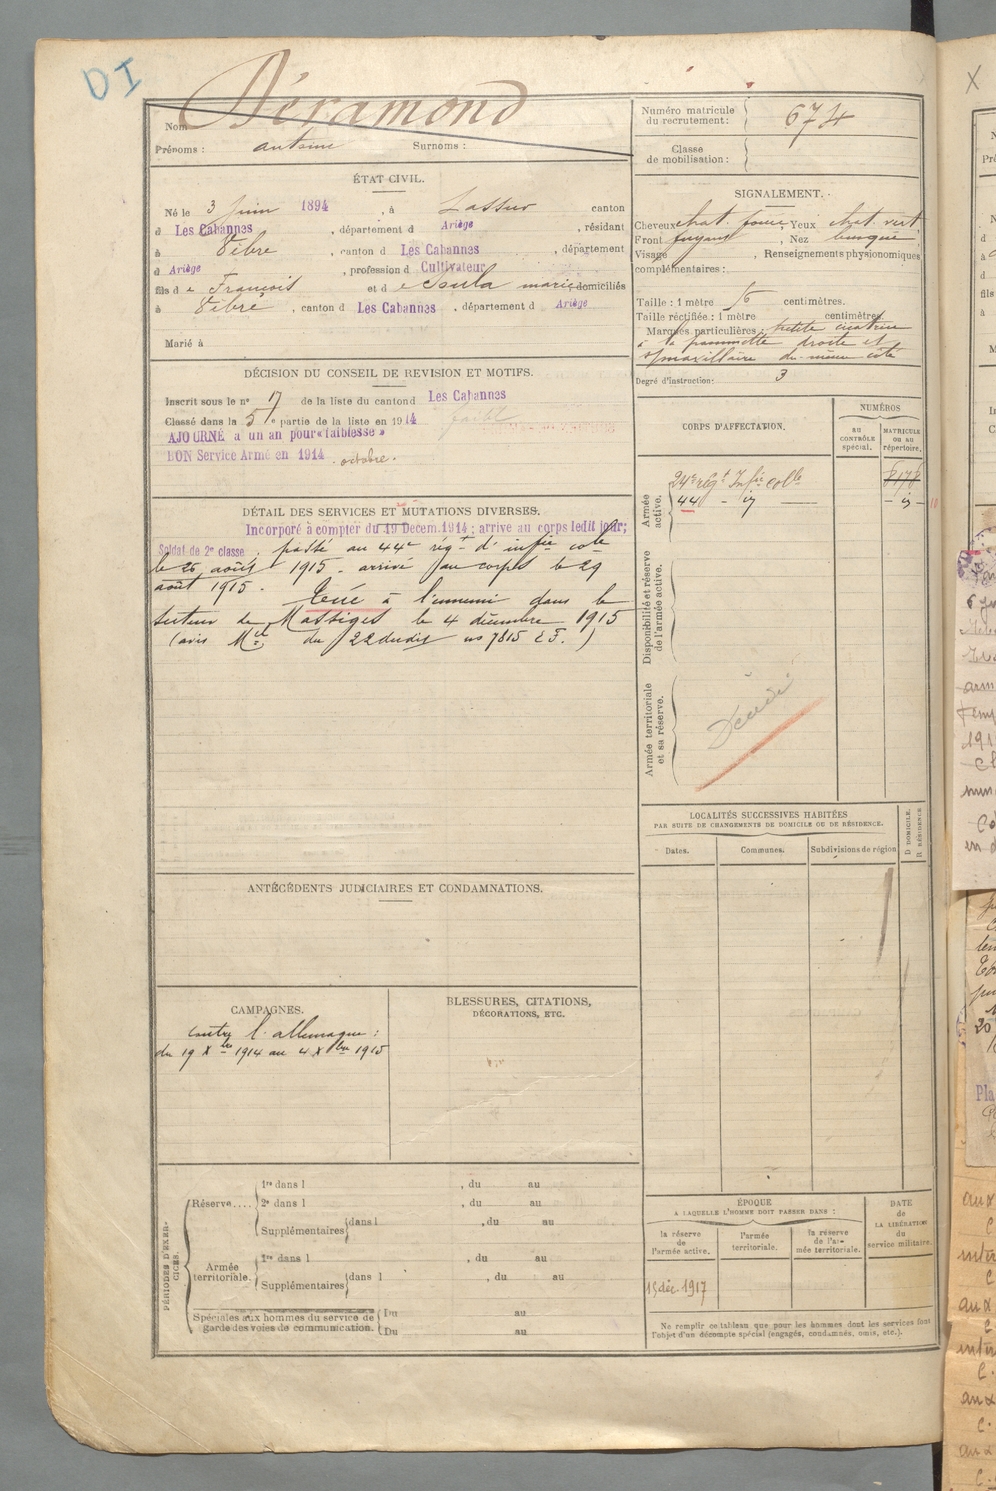 DI
Nom Déramond
Prénoms : antoine Surnoms :
Numéro matricule du recrutement : 674
Classe de mobilisation :
ÉTAT CIVIL.
Né le 3 Juin 1894, à Lassur canton
d Les Cabannes, département d Ariège, résidant
à Vèbre, canton d Les Cabannes, département
d Ariège, profession d Cultivateur
fils d e François et d e domiciliés
à Vèbre, canton d Les Cabannes, département d Ariège
Marié à
SIGNALEMENT.
Cheveux chat. foncé, Yeux chat. vert
Front fuyant, Nez busqué
Visage , Renseignements physionomiques
complémentaires :
Taille : 1 mètre 56 centimètres.
Taille rectifiée : 1 mètre centimètres.
Marques particulières : petite cicatrice
à la pommette droite et
maxillaire du même côté
Degré d'instruction : 3
DÉCISION DU CONSEIL DE REVISION ET MOTIFS.
Inscrit sous le n° 17 de la liste du canton d Les Cabannes
Classé dans la 5e partie de la liste en 1914
AJOURNÉ à un an pour « faiblesse »
BON Service Armé en 1914 octobre.
DÉTAIL DES SERVICES ET MUTATIONS DIVERSES.
Incorporé à compter du 19 Décem. 1914 ; arrivé au corps ledit jour;
Soldat de 2e classe. passé au 44e régt d'infie cole
le 26 août 1915. arrivé au corps le 29
août 1915. Tué à l'ennemi dans le
secteur de Massiges le 4 décembre 1915
(avis Mel du 22 dudit no 7815 E.F.)
CORPS D'AFFECTATION.
NUMÉROS
AU CONTRÔLE SPÉCIAL.
MATRICULE OU AU RÉPERTOIRE.
Armée active.
24e régt Infie colle 8178
44 - id - id
Disponibilité et réserve de l'armée active.
Armée territoriale et sa réserve.
Décédé
LOCALITÉS SUCCESSIVES HABITÉES
PAR SUITE DE CHANGEMENTS DE DOMICILE OU DE RÉSIDENCE.
Dates. Communes. Subdivisions de région
D DOMICILE. R RÉSIDENCE
ANTÉCÉDENTS JUDICIAIRES ET CONDAMNATIONS.
CAMPAGNES.
contre l'allemagne :
du 19 Xbre 1914 au 4 Xbre 1915
BLESSURES, CITATIONS,
DÉCORATIONS, ETC.
PÉRIODES D'EXERCICES.
Réserve....
1re dans l , du au
2e dans l , du au
Supplémentaires dans l , du au
Armée territoriale.
1re dans l , du au
Supplémentaires dans l , du au
Spéciales aux hommes du service de garde des voies de communication.
Du au
Du au
ÉPOQUE
A LAQUELLE L'HOMME DOIT PASSER DANS :
la réserve de l'armée active.
l'armée territoriale.
la réserve de l'armée territoriale.
DATE de LA LIBÉRATION du service militaire.
15 déc. 1917
Ne remplir ce tableau que pour les hommes dont les services font
l'objet d'un décompte spécial (engagés, condamnés, omis, etc.).